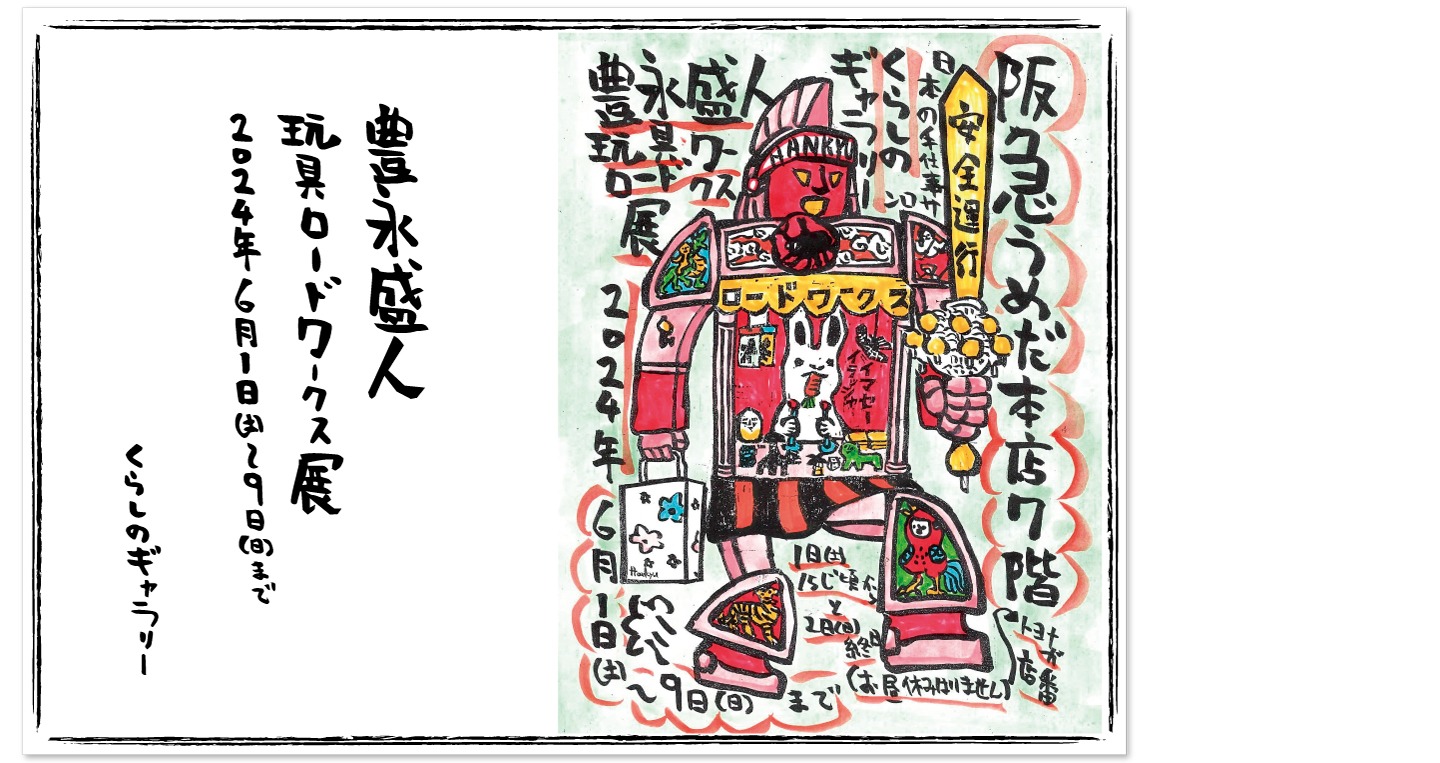 豊永盛人
玩具ロードワークス展
2024年6月1日(土)〜9日(日)まで
くらしのギャラリー
阪急うめだ本店7階
日本の手仕事サロン
くらしの
ギャラリー
豊永盛人
玩具ロードワークス展
2024年
6月1日(土)
〜9日(日)まで
安全運行
HANKYU
ロードワークス
イラッシャイマセー
Hankyu
1日(土)
15じ頃から
と
2日(日)
終日
トヨナガ店番
(お昼休みはりません)